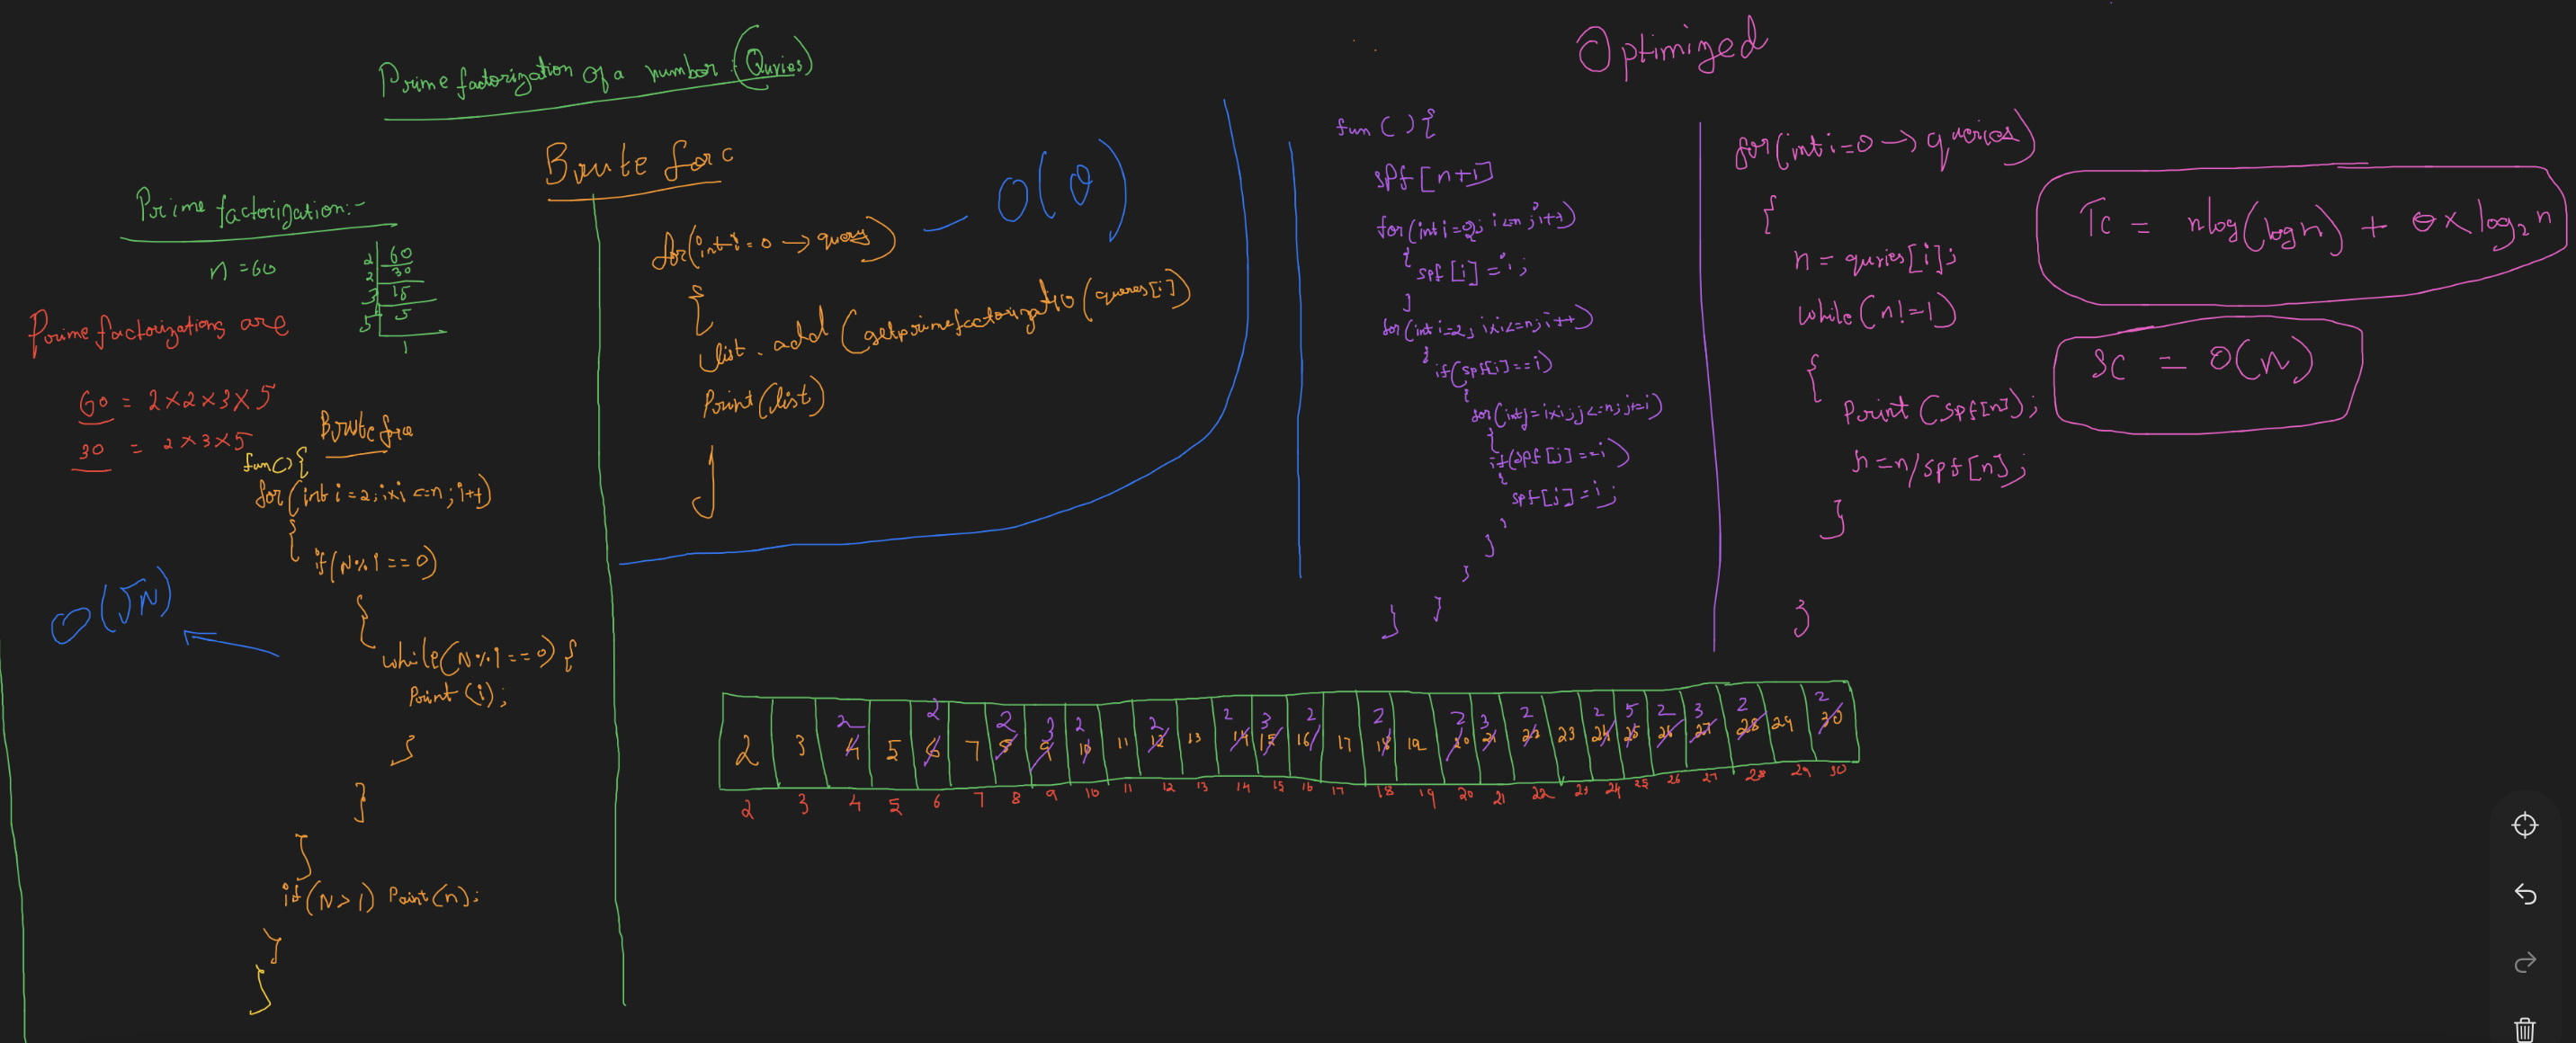 Prime factorization of a number : (Quries)
Optimized
Prime factorization:-
n = 60
2 60
2 30
3 15
5 5
1
Prime factorizations are
60 = 2 x 2 x 3 x 5
30 = 2 x 3 x 5
Brute force
fun(){
for(int i = 2; i x i <= n; i++)
{
if(N % i == 0)
{
while(N % i == 0) {
Print(i);
}
}
}
if(N > 1) Print(n);
}
}
O(√N)
Brute forc
for(int i = 0 → query) — O(Q)
{
list.add(getprimefactorizatio(queres[i])
Print(list)
}
fun(){
spf[n+1]
for(int i=2; i<=n; i++)
{
spf[i] = i;
}
for(int i=2; ixi<=n; i++)
{
if(spf[i]==i)
{
for(int j=ixi; j<=n; j+=i)
{
if(spf[j]==i)
{
spf[j]=i;
}
}
}
}
}
for(int i=0 → queries)
{
n = quries[i];
while(n!=1)
{
Print(spf[n]);
n=n/spf[n];
}
}
TC = nlog(logn) + Q x log₂n
SC = O(n)
2 2 2 3 2 2 2 3 2 2 2 3 2 2 5 2 3 2 2
2 3 4 5 6 7 8 9 10 11 12 13 14 15 16 17 18 19 20 21 22 23 24 25 26 27 28 29 30
2 3 4 5 6 7 8 9 10 11 12 13 14 15 16 17 18 19 20 21 22 23 24 25 26 27 28 29 30